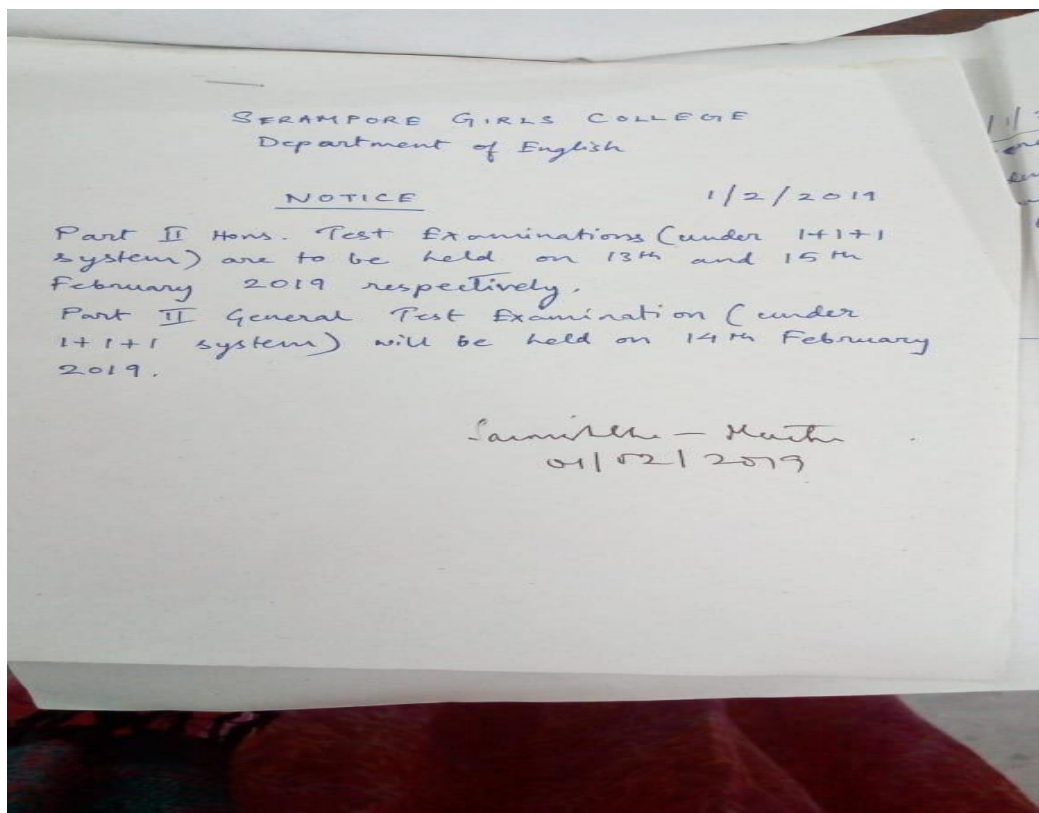 SERAMPORE GIRLS COLLEGE
Department of English
NOTICE 1/2/2019
Part II Hons. Test Examinations (under 1+1+1
system) are to be held on 13th and 15th
February 2019 respectively.
Part II General Test Examination (under
1+1+1 system) will be held on 14th February
2019.
01/02/2019